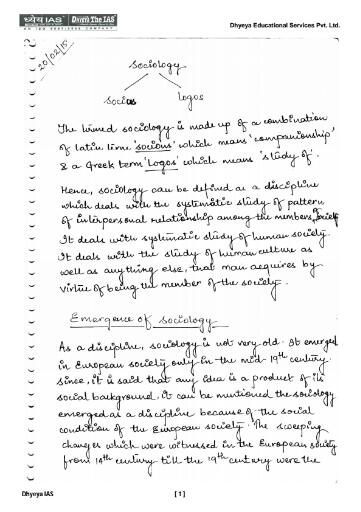 ध्येय IAS Dhyeya The IAS
Dhyeya Educational Services Pvt. Ltd.
20/02/15
Sociology
Socius logos
The termed sociology is made up of a combination
of latin time 'socious' which means 'companionship'
& a Greek term 'Logos' which means 'study of'.
Hence, sociology can be defined as a discipline
which deals with the systematic study of pattern
of interpersonal relationship among the members of society
It deals with systematic study of human society.
It deals with the study of human culture as
well as anything else, that man acquires by
virtue of being the member of the society.
Emergence of Sociology
As a discipline, sociology is not very old. It emerged
in European society only in the mid 19th century.
since, it is said that any idea is a product of its
social background. it can be mentioned the sociology
emerged as a discipline because of the social
condition of the European society. The sweeping
changes which were witnessed in the European society
from 14th century till the 19th century were the
Dhyeya IAS [1]